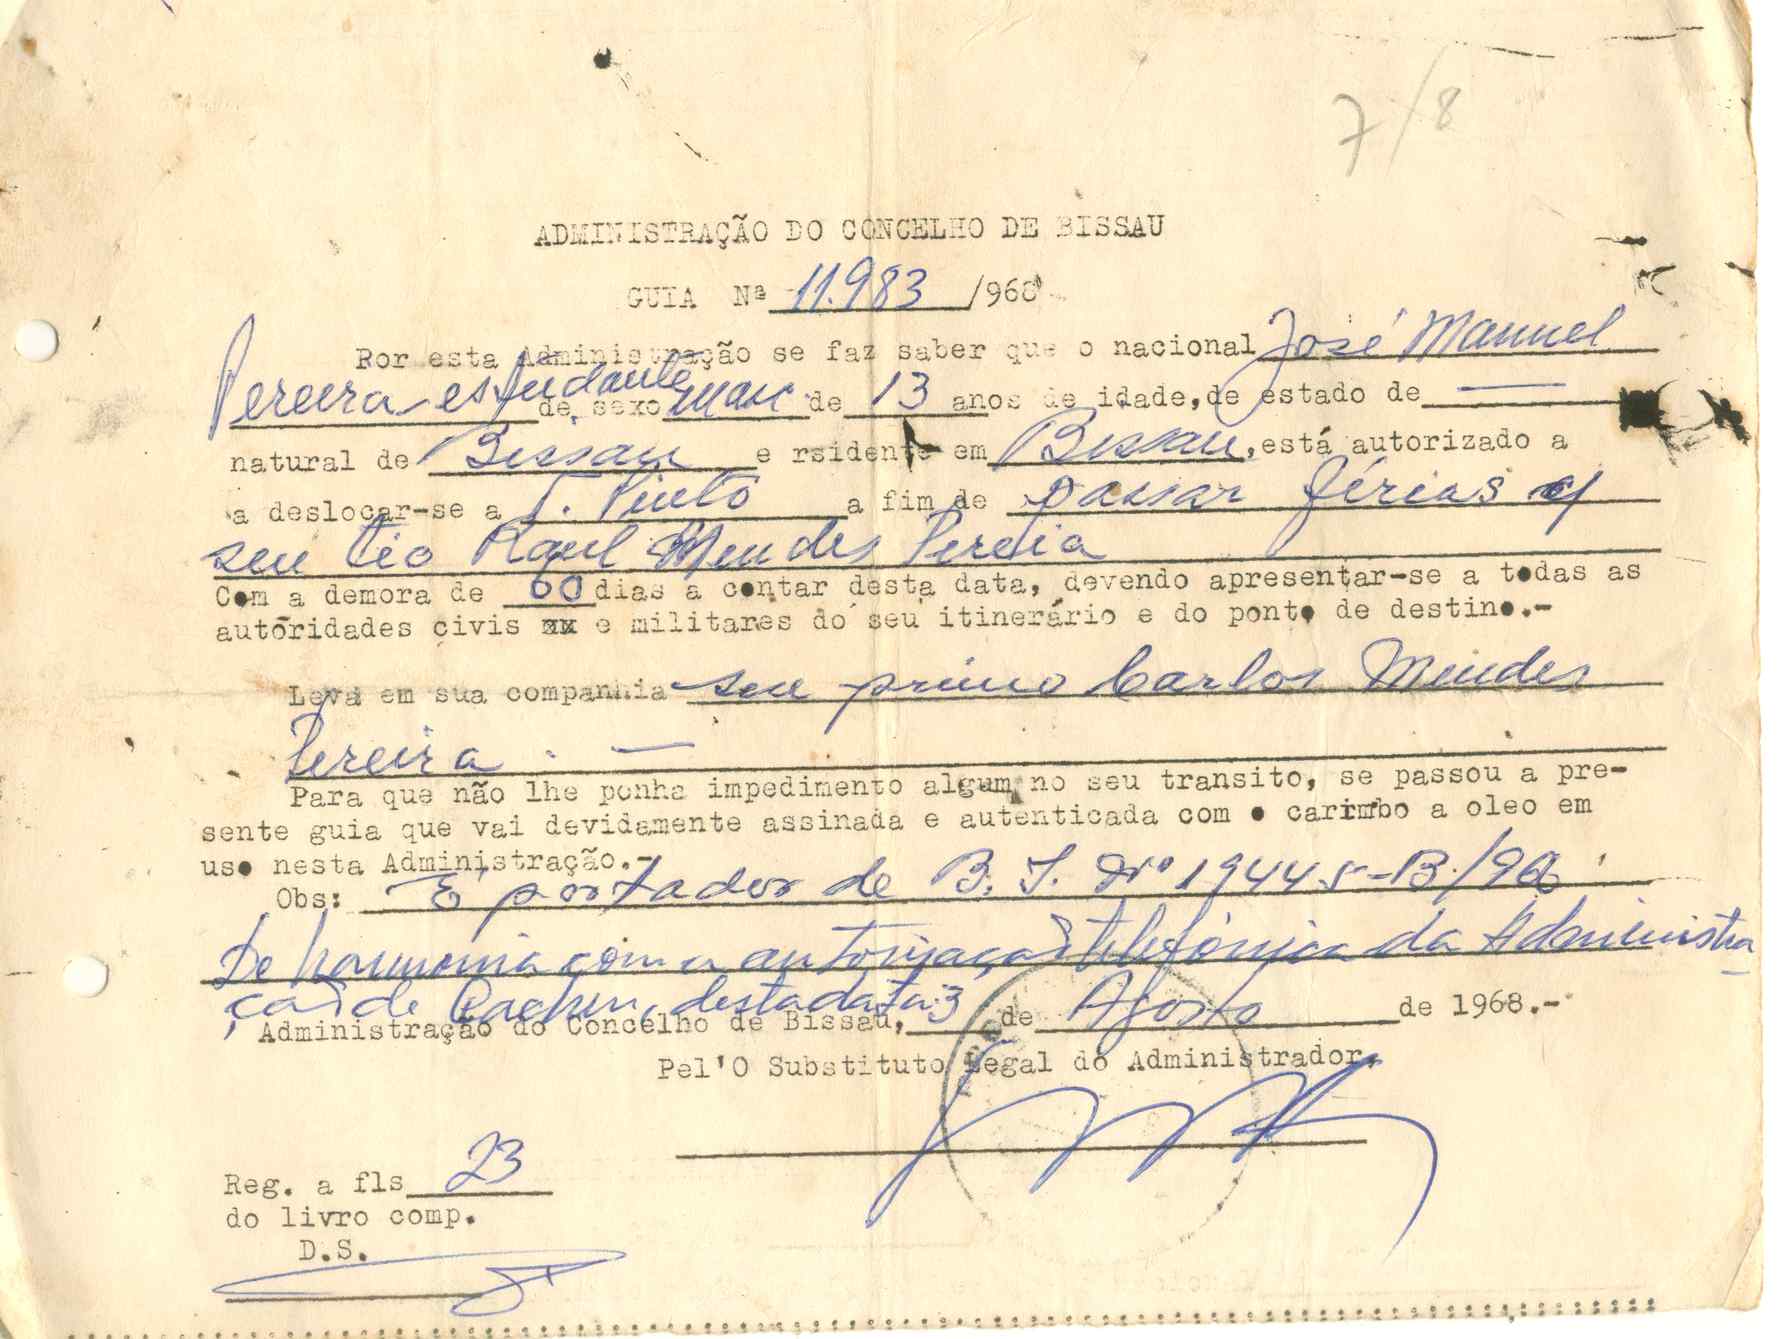 7/8
ADMINISTRAÇÃO DO CONCELHO DE BISSAU
GUIA Nª 11.983 /968
Por esta Administração se faz saber que o nacional José Manuel
Pereira estudante de sexo masc de 13 anos de idade, de estado de —
natural de Bissau e rsidente em Bissau, está autorizado a
a deslocar-se a T. Pinto a fim de passar férias c/
seu tio Raul Mendes Pereia
Com a demora de 60 dias a contar desta data, devendo apresentar-se a todas as
autoridades civis xx e militares do seu itinerário e do ponto de destino.-
Leva em sua companhia seu primo Carlos Mendes
Pereira . —
Para que não lhe ponha impedimento algum no seu transito, se passou a pre-
sente guia que vai devidamente assinada e autenticada com o carimbo a oleo em
uso nesta Administração.-
Obs: É portador de B. I. Nº 19445-B/
De harmonia com a autorização telefónica da Administra
ção de Cacheu, desta data
Administração do Concelho de Bissau, 3 de Agosto de 1968.-
Pel'O Substituto Legal do Administrador,
Reg. a fls 23
do livro comp.
D.S.